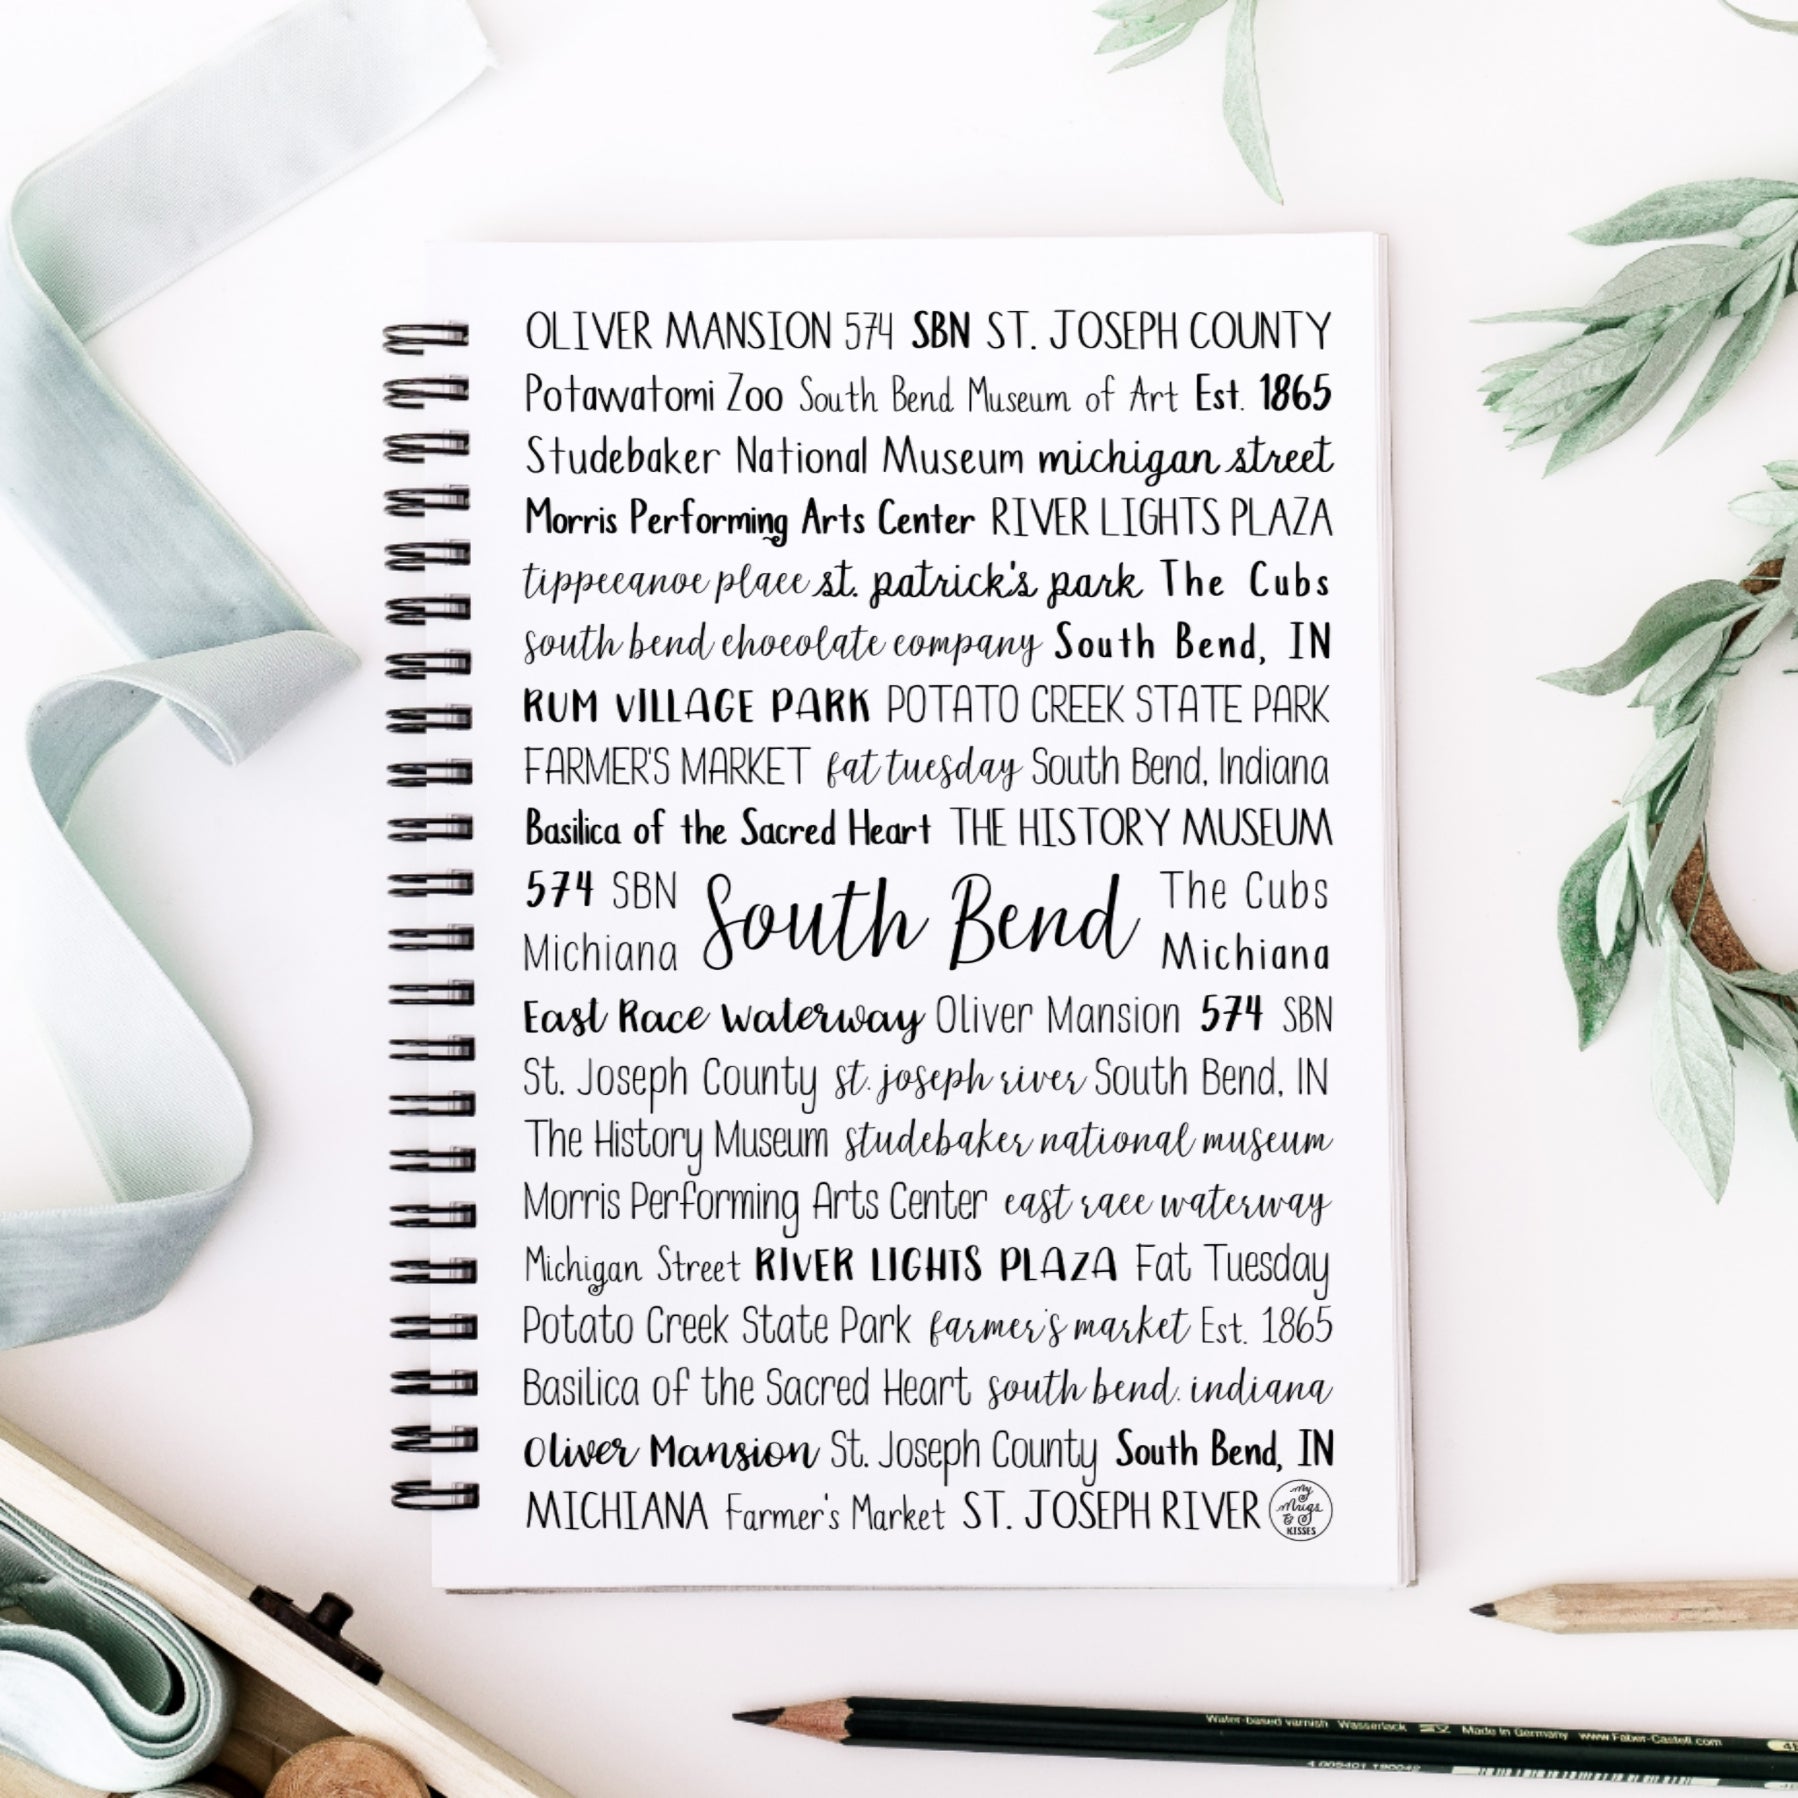 OLIVER MANSION 574 SBN ST. JOSEPH COUNTY
Potawatomi Zoo South Bend Museum of Art Est. 1865
Studebaker National Museum michigan street
Morris Performing Arts Center RIVER LIGHTS PLAZA
tippecanoe place st. patrick's park The Cubs
south bend chocolate company South Bend, IN
RUM VILLAGE PARK POTATO CREEK STATE PARK
FARMER'S MARKET fat tuesday South Bend, Indiana
Basilica of the Sacred Heart THE HISTORY MUSEUM
574 SBN
Michiana
South Bend
The Cubs
Michiana
East Race Waterway Oliver Mansion 574 SBN
St. Joseph County st. joseph river South Bend, IN
The History Museum studebaker national museum
Morris Performing Arts Center east race waterway
Michigan Street RIVER LIGHTS PLAZA Fat Tuesday
Potato Creek State Park farmer's market Est. 1865
Basilica of the Sacred Heart south bend. indiana
Oliver Mansion St. Joseph County South Bend, IN
MICHIANA Farmer's Market ST. JOSEPH RIVER
My
Mugs
&
KISSES
Water-based varnish Wasserlack Made in Germany www.Faber-Castell.com
4 005401 190042